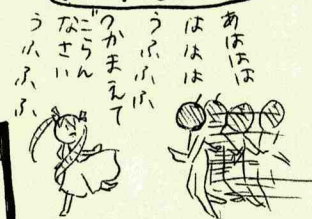 あはは
ははは
うふふふ
つかまえて
ごらん
なさい
うふふふ